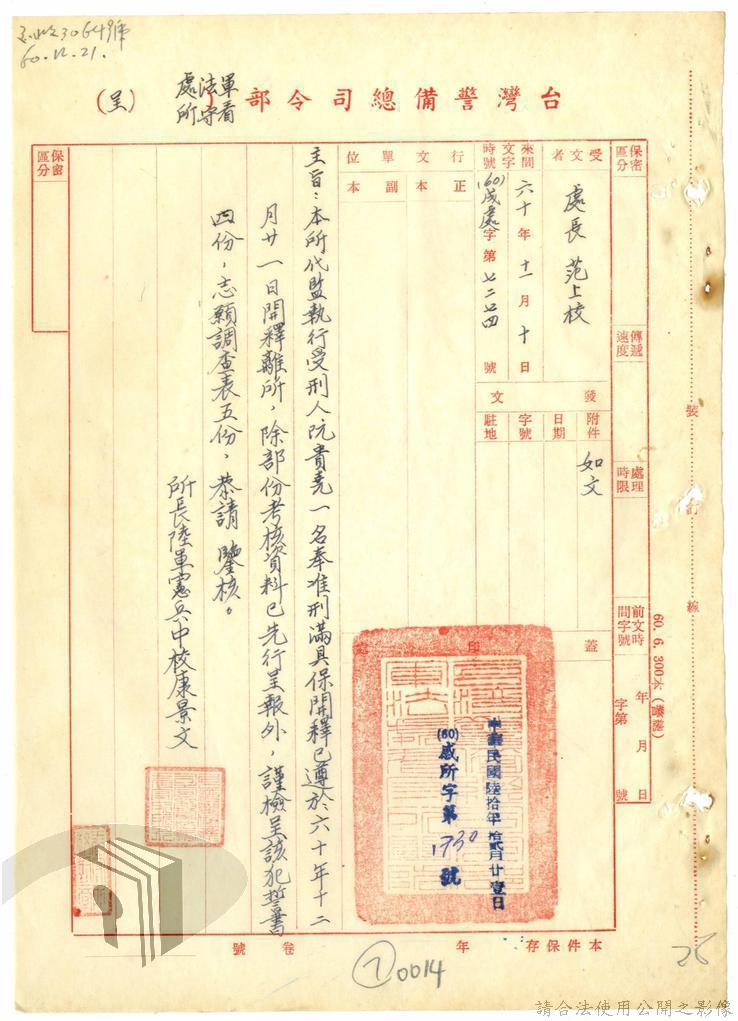 60.12.21.
台灣警備總司令部 軍法處 看守所 (呈)
保密區分
傳遞速度
處理時限
前文時間字號
年 月 日
字第 號
受文者
處長 范上校
來文時間字號
六十年十一月十日
(60)成處字第七二七四號
發文
附件
如文
日期
字號
駐地
行文單位
正本
副本
蓋印
中華民國陸拾年拾貳月廿壹日
(60)感所字第1730號
主旨：本所代監執行受刑人阮貴堯一名奉准刑滿具保開釋已遵於六十年十二
月廿一日開釋離所，除部份考核資料已先行呈報外，謹檢呈該犯誓書
四份，志願調查表五份，恭請 鑒核。
所長陸軍憲兵中校康景文
保密區分
本件保存 年
卷 號
裝訂線
60. 6. 300本
7
0014
請合法使用公開之影像